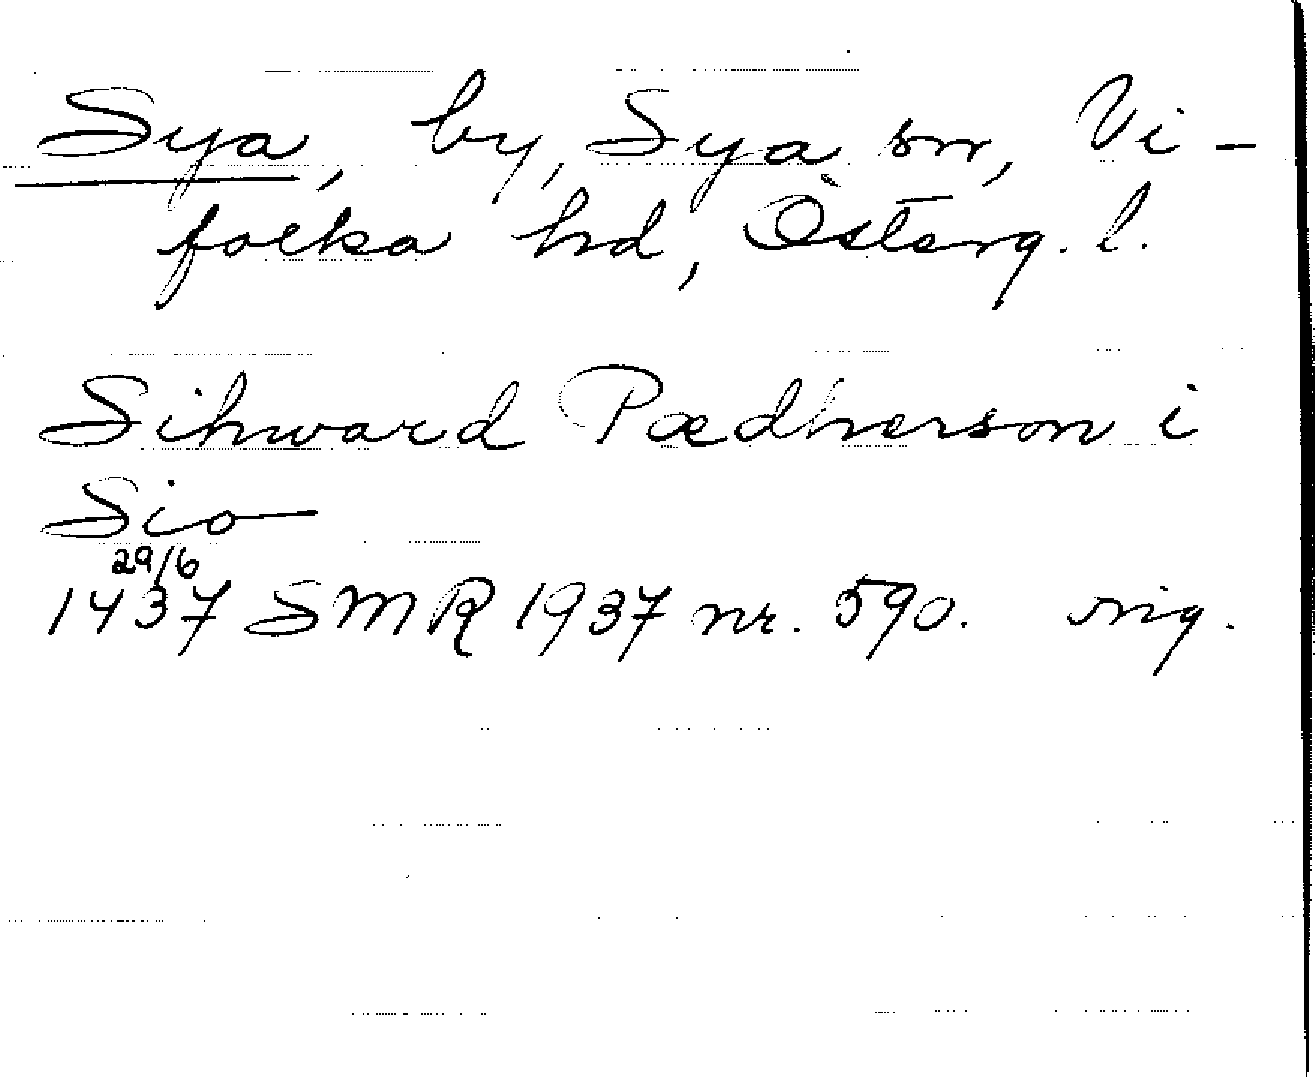 Sya, by, Sya sn, Vi-
folka hd, Österg. l.
Sihward Pædherson i
Sio
29/6
1437 SMR 1937 nr. 590. orig.